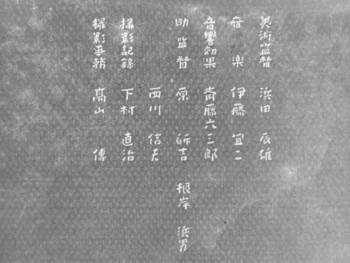 美術監督 浜田 辰雄
音楽 伊藤 宣二
音響効果 斎藤六三郎
助監督 原 研吉 根岸 浜男
西川 信夫
撮影記録 下村 直治
撮影事務 高山 傳